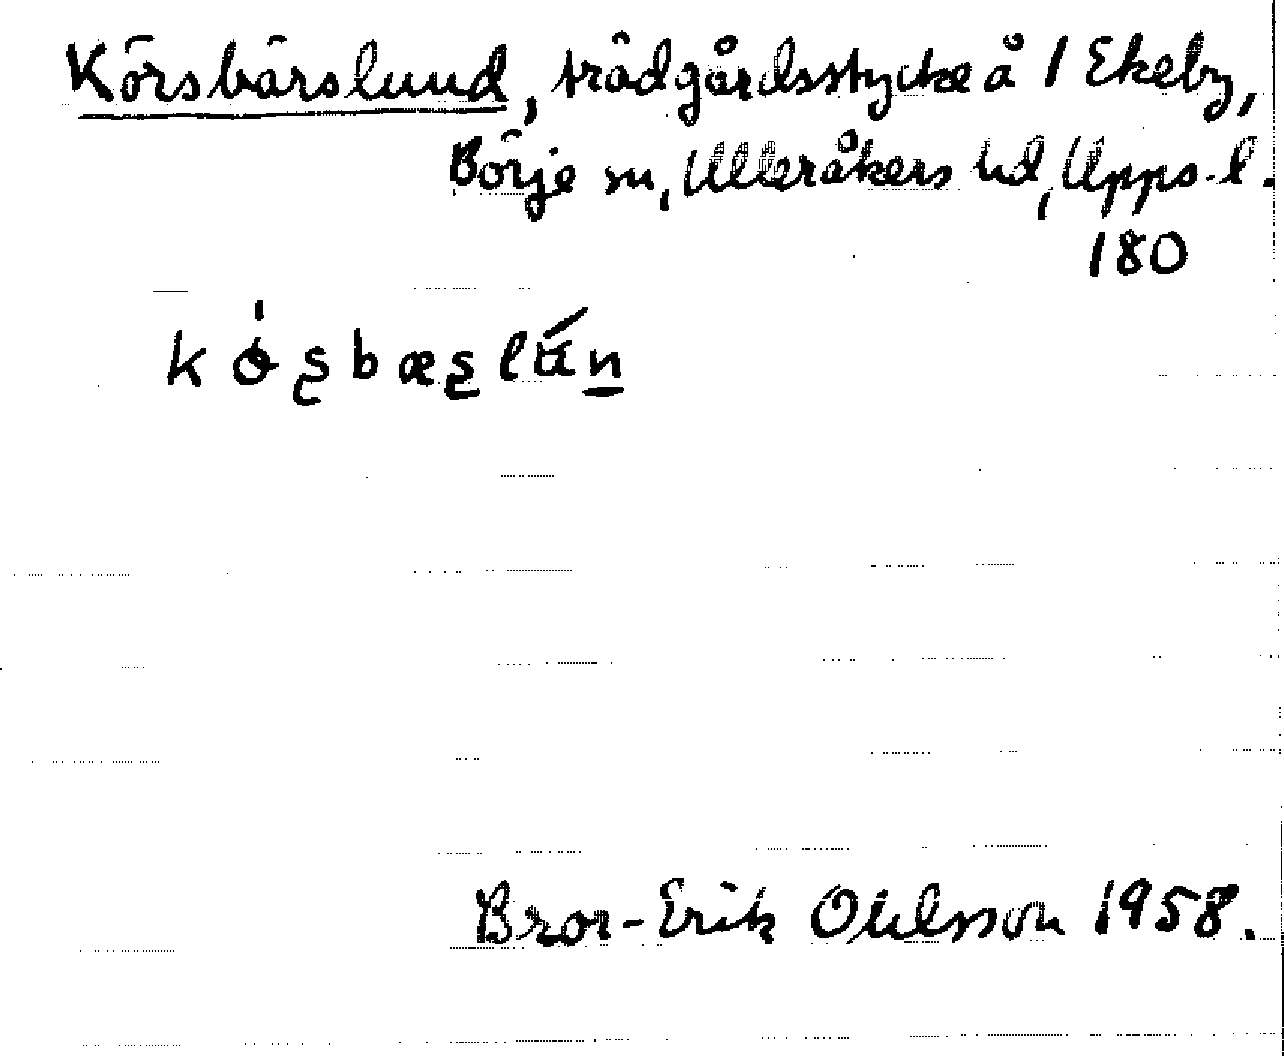 Körsbärslund, trädgårdsstycke å 1 Ekeby,
Börje sn, Ulleråkers hd, Upps. l.
180
Bror-Erik Ohlsson 1958.